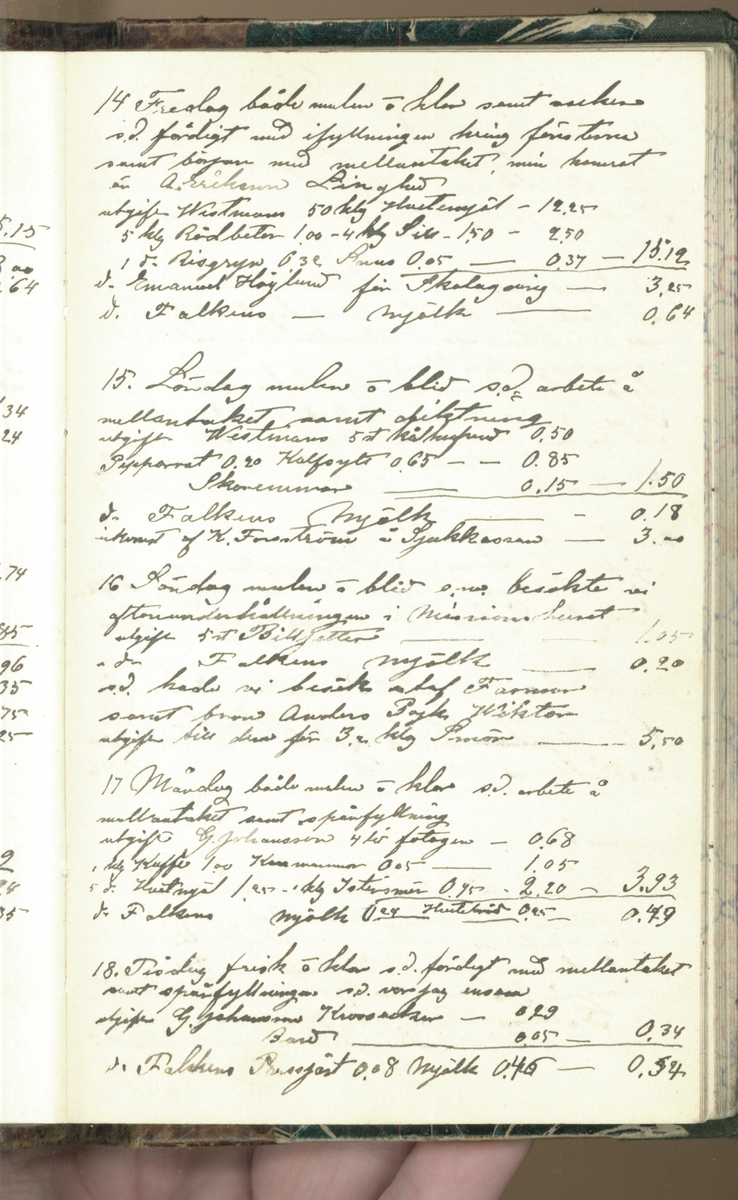 5.15
3 00
.64
.34
24
.74
85
96
35
75
25
2
28
35
14 Fredag både mulen o klar samt
s.d. färdigt med ifyllningen kring fönsterna
samt började med mellantaket, min kamrat
är A. Erikson Linghed
utgift Westmans 50 klg Hvetemjöl – 12.25
5 klg Rödbetor 1.00 – 4 klg Sill – 1.50 – 2.50
1 d. Risgryn 0.32 Snus 0.05 — 0.37 – 15.12
d. Emanuel Höglund för — 3.25
d. Falkens — Mjölk — 0.64
15. Lördag mulen o blid s.d. arbete å
mellantaket samt diktning
utgift Westmans 5 st 0.50
Pepparrot 0.20 Kalfsylta 0.65 – – 0.85
Skoremmar — 0.15 – 1.50
d. Falkens Mjölk — 0.18
inkomst af K. Forsström i Sjukkassan — 3.00
16 Söndag mulen o blid e.m. besökte vi
aftonunderhållningen i Missionshuset
utgift 5 st Billjetter — 1.05
d. Falkens Mjölk — 0.20
s.d. hade vi besök utaf Farmor
samt bror Anders Pojk Wiktor
utgift till dem för 3.2 klg Smör — 5.50
17 Måndag både mulen o klar s.d. arbete å
mellantaket samt spånfyllning
utgift G. Johansson 4 lir fotogen – 0.68
1 klg Kaffe 1.00 0.05 — 1.05
5 d. Hvetmjöl 1.25 – 1 klg Istersmör 0.95 – 2.20 – 3.93
d. Falkens Mjölk 0.24 Hvetebröd 0.25 — 0.49
18. Tisdag frisk o klar s.d. färdigt med mellantaket
samt spånfyllningen s.d. var jag ensam
utgift G. Johansson – 0.29
0.05 – 0.34
d. Falkens Pressjäst 0.08 Mjölk 0.46 — 0.54